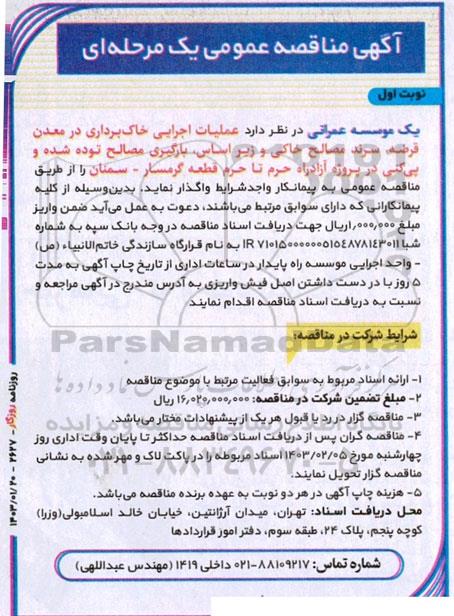 آگهی مناقصه عمومی یک مرحله‌ای
نوبت اول
یک موسسه عمرانی در نظر دارد عملیات اجرایی خاک‌برداری در معدن
قرضه، سرند مصالح خاکی و زیر اساس، بارگیری مصالح توده شده و
پی‌کنی در پروژه آزادراه حرم تا حرم قطعه گرمسار - سمنان را از طریق
مناقصه عمومی به پیمانکار واجدشرایط واگذار نماید. بدین‌وسیله از کلیه
پیمانکارانی که دارای سوابق مرتبط می‌باشند، دعوت به عمل می‌آید ضمن واریز
مبلغ ۱,۰۰۰,۰۰۰ریال جهت دریافت اسناد مناقصه در وجه بانک سپه به شماره
شبا IR ۷۱۰۱۵۰۰۰۰۰۰۰۵۱۵۴۸۷۸۱۴۳۰۱۱ به نام قرارگاه سازندگی خاتم‌الانبیاء (ص)
- واحد اجرایی موسسه راه پایدار در ساعات اداری از تاریخ چاپ آگهی به مدت
۵ روز با در دست داشتن اصل فیش واریزی به آدرس مندرج در آگهی مراجعه و
نسبت به دریافت اسناد مناقصه اقدام نمایند
شرایط شرکت در مناقصه:
ParsNamadData
۱- ارائه اسناد مربوط به سوابق فعالیت مرتبط با موضوع مناقصه
۲- مبلغ تضمین شرکت در مناقصه: ۱۶,۰۲۰,۰۰۰,۰۰۰ ریال
۳- مناقصه گزار در رد یا قبول هر یک از پیشنهادات مختار می‌باشد.
۴- مناقصه گران پس از دریافت اسناد مناقصه حداکثر تا پایان وقت اداری روز
چهارشنبه مورخ ۱۴۰۳/۰۲/۰۵ اسناد مربوطه را در پاکت لاک و مهر شده به نشانی
مناقصه گزار تحویل نمایند.
۵- هزینه چاپ آگهی در هر دو نوبت به عهده برنده مناقصه می‌باشد.
محل دریافت اسناد: تهران، میدان آرژانتین، خیابان خالد اسلامبولی(وزرا)
کوچه پنجم، پلاک ۲۴، طبقه سوم، دفتر امور قراردادها
شماره تماس: ۸۸۱۰۹۲۱۷-۰۲۱ داخلی ۱۴۱۹ (مهندس عبداللهی)
روزنامه روزگار - ۲۶۲۷ - ۱۴۰۳/۰۱/۲۰